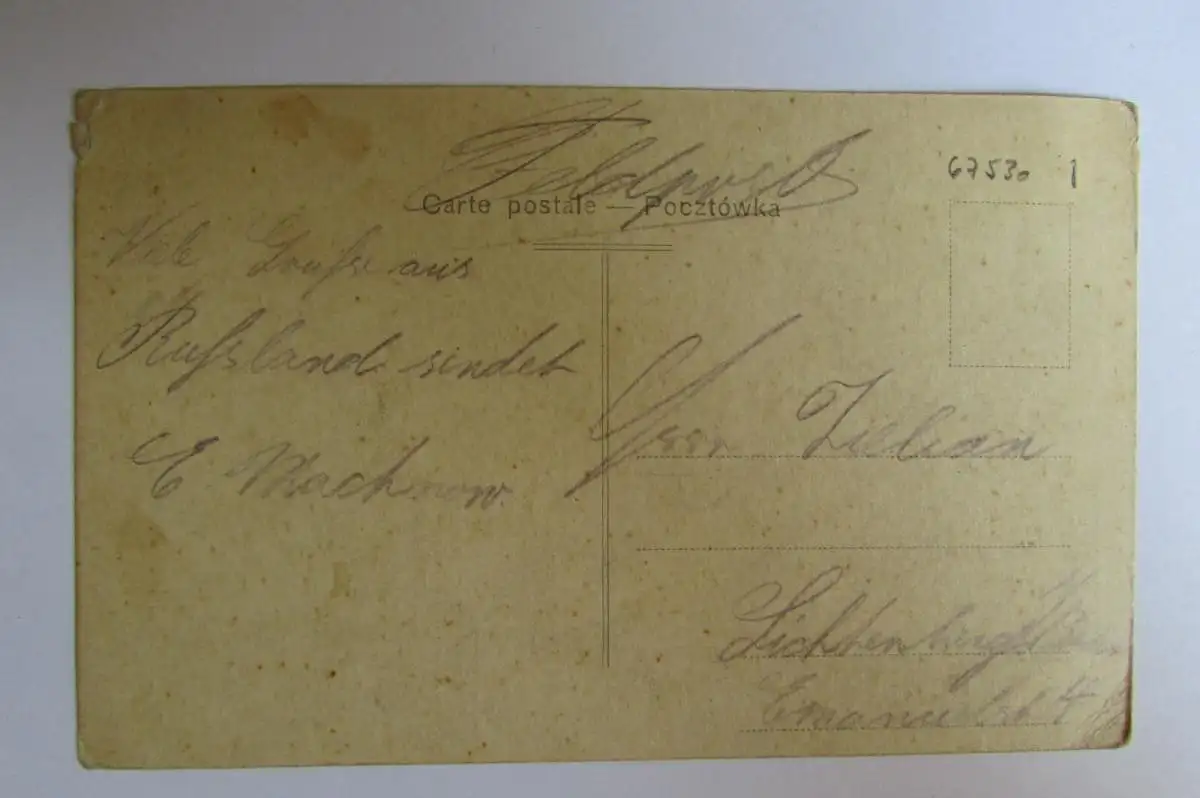 Feldpost
67530 1
Carte postale — Pocztówka
Viele Grüße aus
Rußland sendet
E Machnow.
Herr Zielian
Lichtenberg